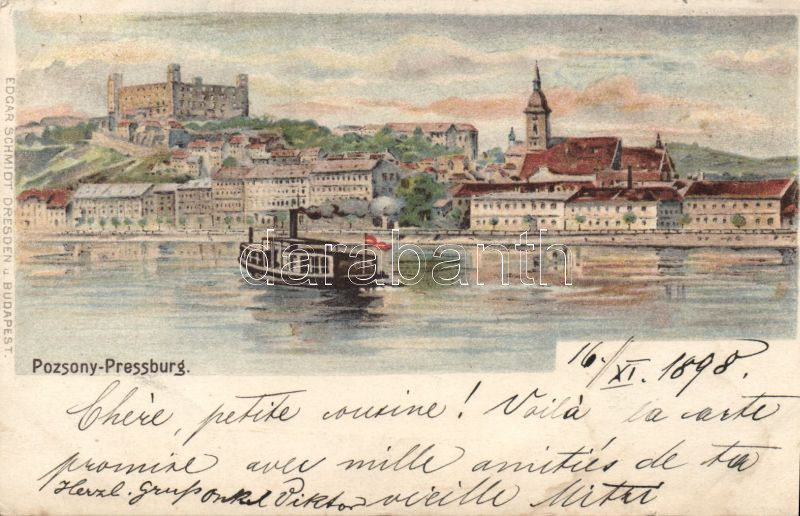 EDGAR SCHMIDT DRESDEN u BUDAPEST.
darabanth
Pozsony-Pressburg.
16./XI. 1898.
Chère, petite cousine! Voilà la carte
promise avec mille amitiés de ta
Herzl. Gruß Onkel Viktor vieille Mitzi